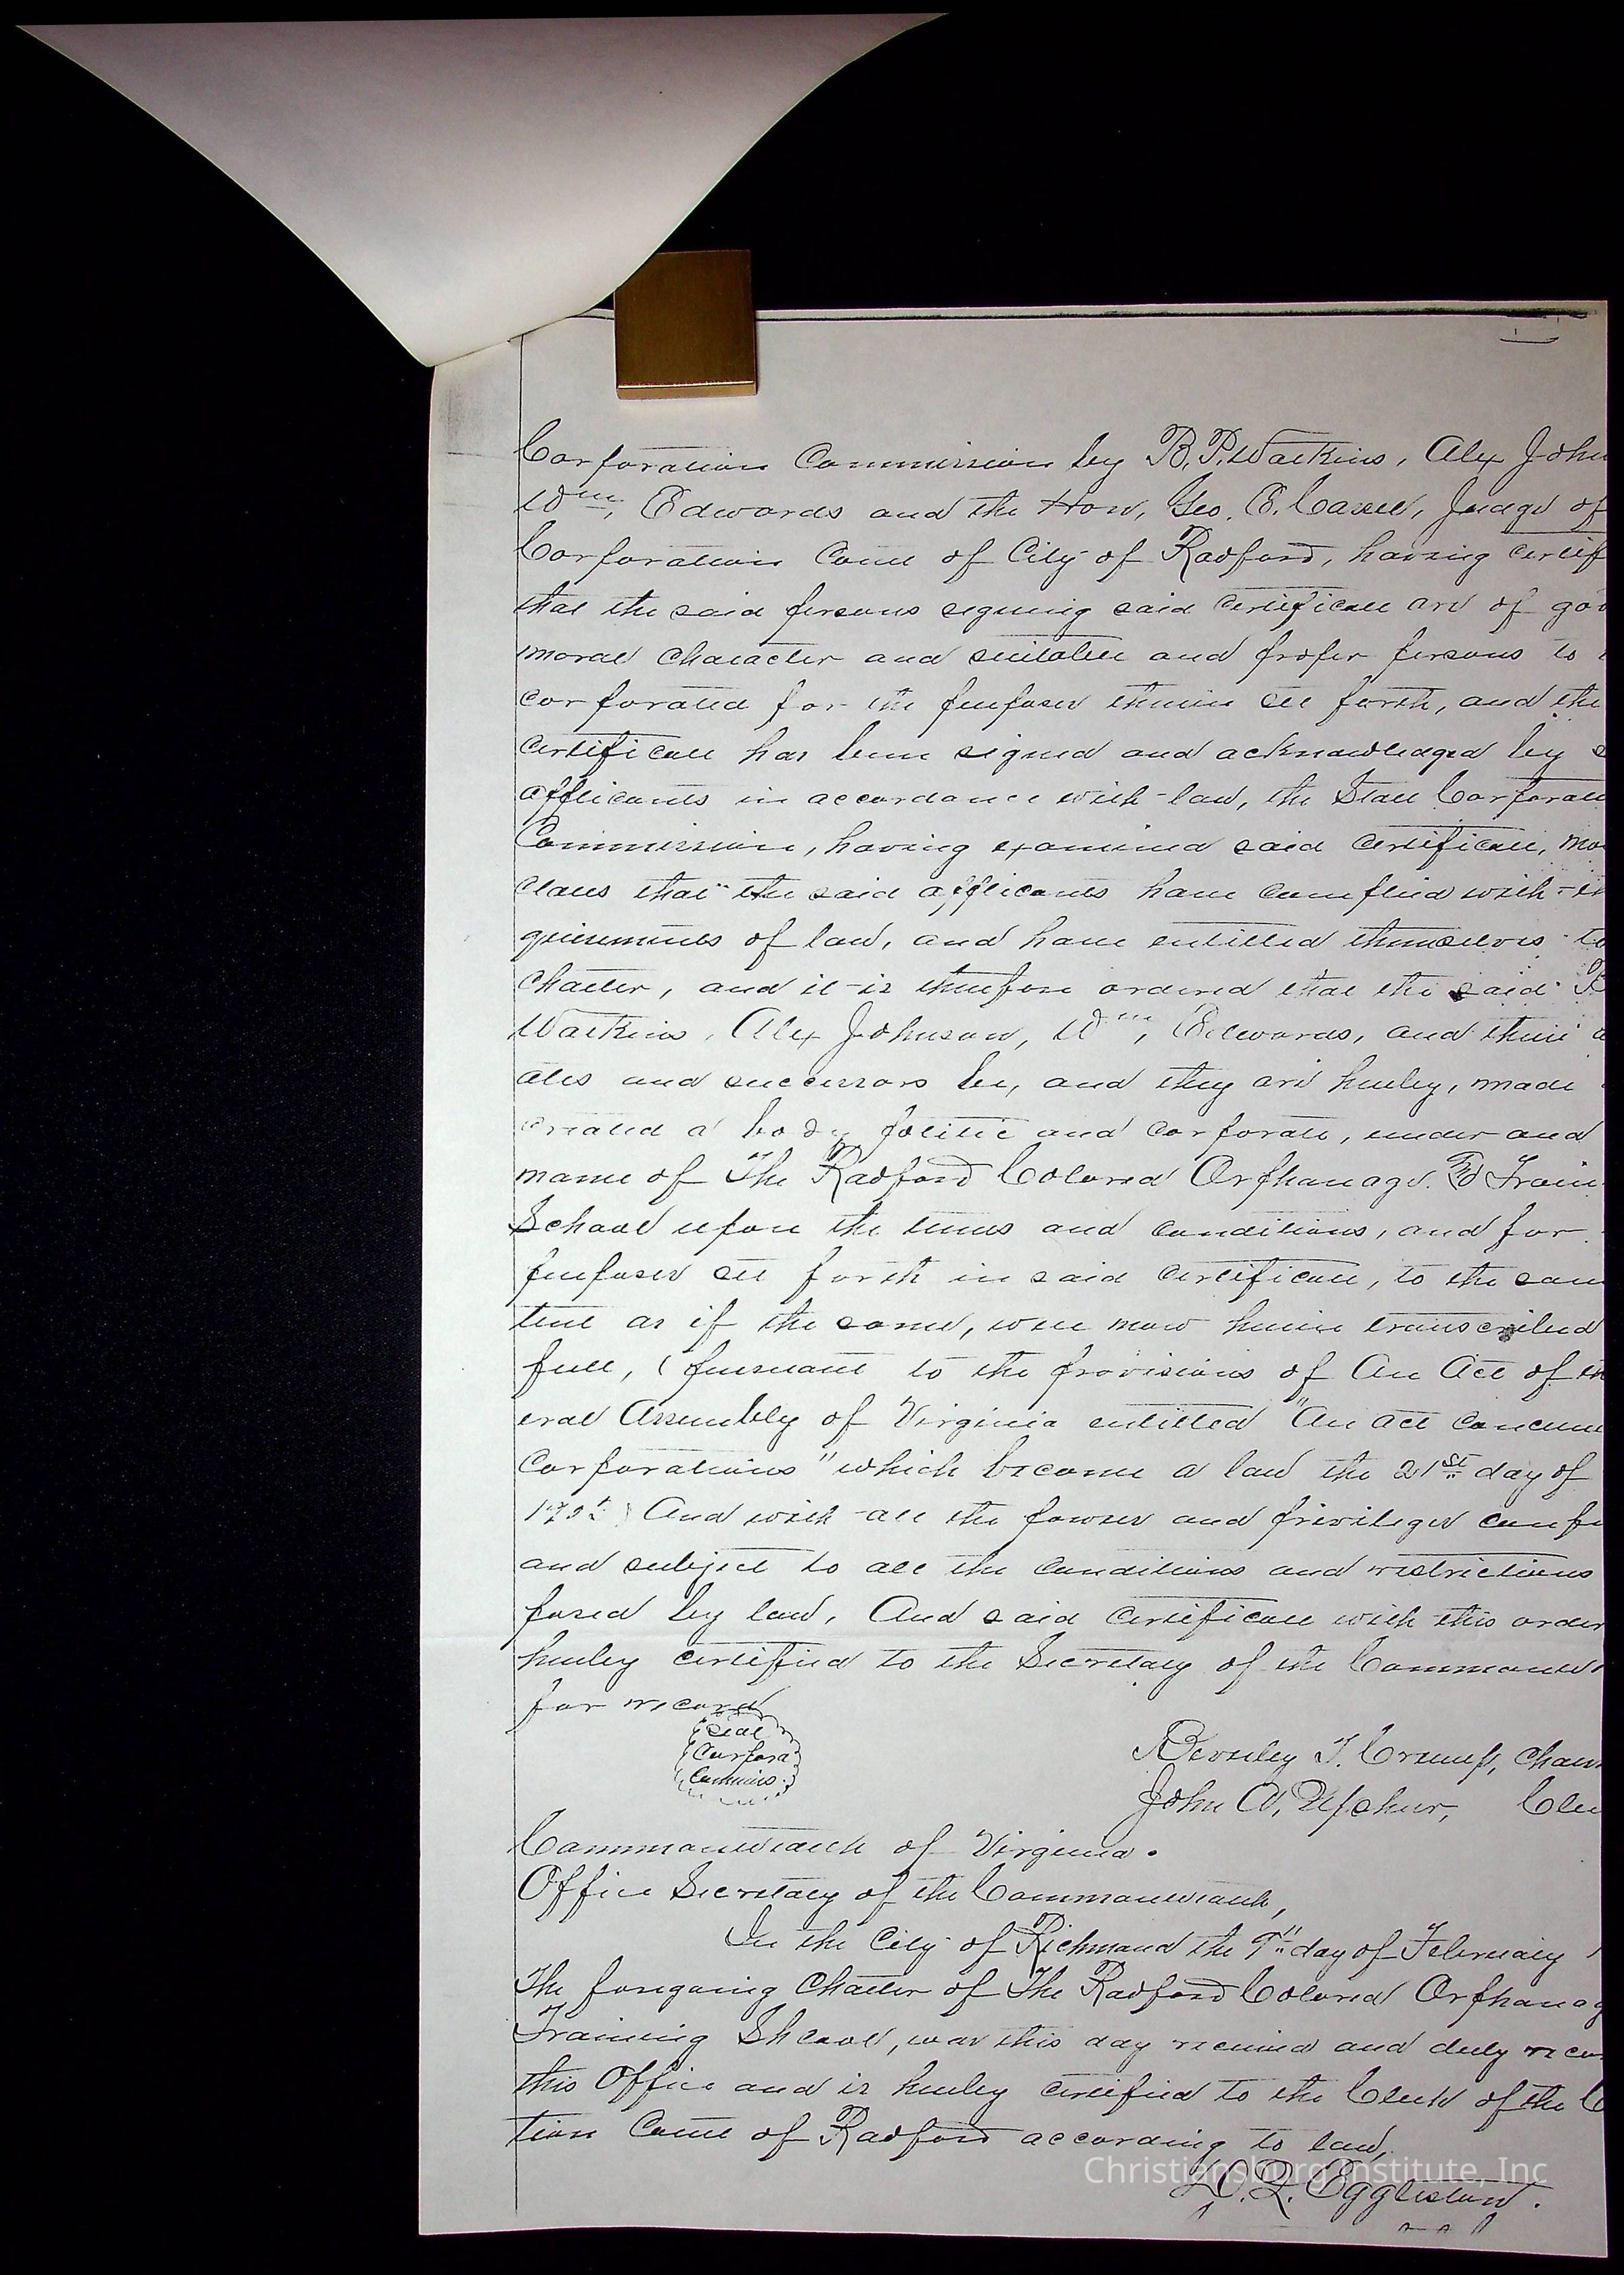 Corporation Commission by B. P. Watkins, Alex John
Wm, Edwards and the Hon, Geo. E. Cassel, Judge of
Corporation Court of City of Radford, having certif
that the said persons signing said certificate are of goo
moral character and suitable and proper persons to
corporated for the purposes therein set forth, and the
certificate has been signed and acknowledged by s
applicants in accordance with law, the State Corporati
Commission, having examined said certificate, now
clares that the said applicants have complied with
quirements of law, and have entitled themselves to
charter, and it is therefore ordered that the said B
Watkins, Alex Johnson, Wm, Edwards, and their a
ates and successors be, and they are hereby, made
created a body politic and corporate, under and
name of The Radford Colored Orphanage & Train
School upon the terms and conditions, and for
purposes set forth in said certificate, to the sam
tent as if the same, were now herein transcribed
full, (pursuant to the provisions of An Act of th
eral Assembly of Virginia entitled "An act concern
Corporations" which became a law the 21st day of
) And with all the powers and privileges confe
and subject to all the conditions and restrictions
posed by law, And said certificate with this order
hereby certified to the Secretary of the Commonwe
for record
Seal
Corpora
Commis.
Beverley T. Crump, Chair
John A, Upshur, Cler
Commonwealth of Virginia.
Office Secretary of the Commonwealth,
In the City of Richmond the day of February
The foregoing Charter of The Radford Colored Orphanag
Training Shcool, was this day received and duly recor
this Office and is hereby certified to the Clerk of the C
tion Court of Radford according to law,
D. Q. Eggleston.
Christiansburg Institute, Inc